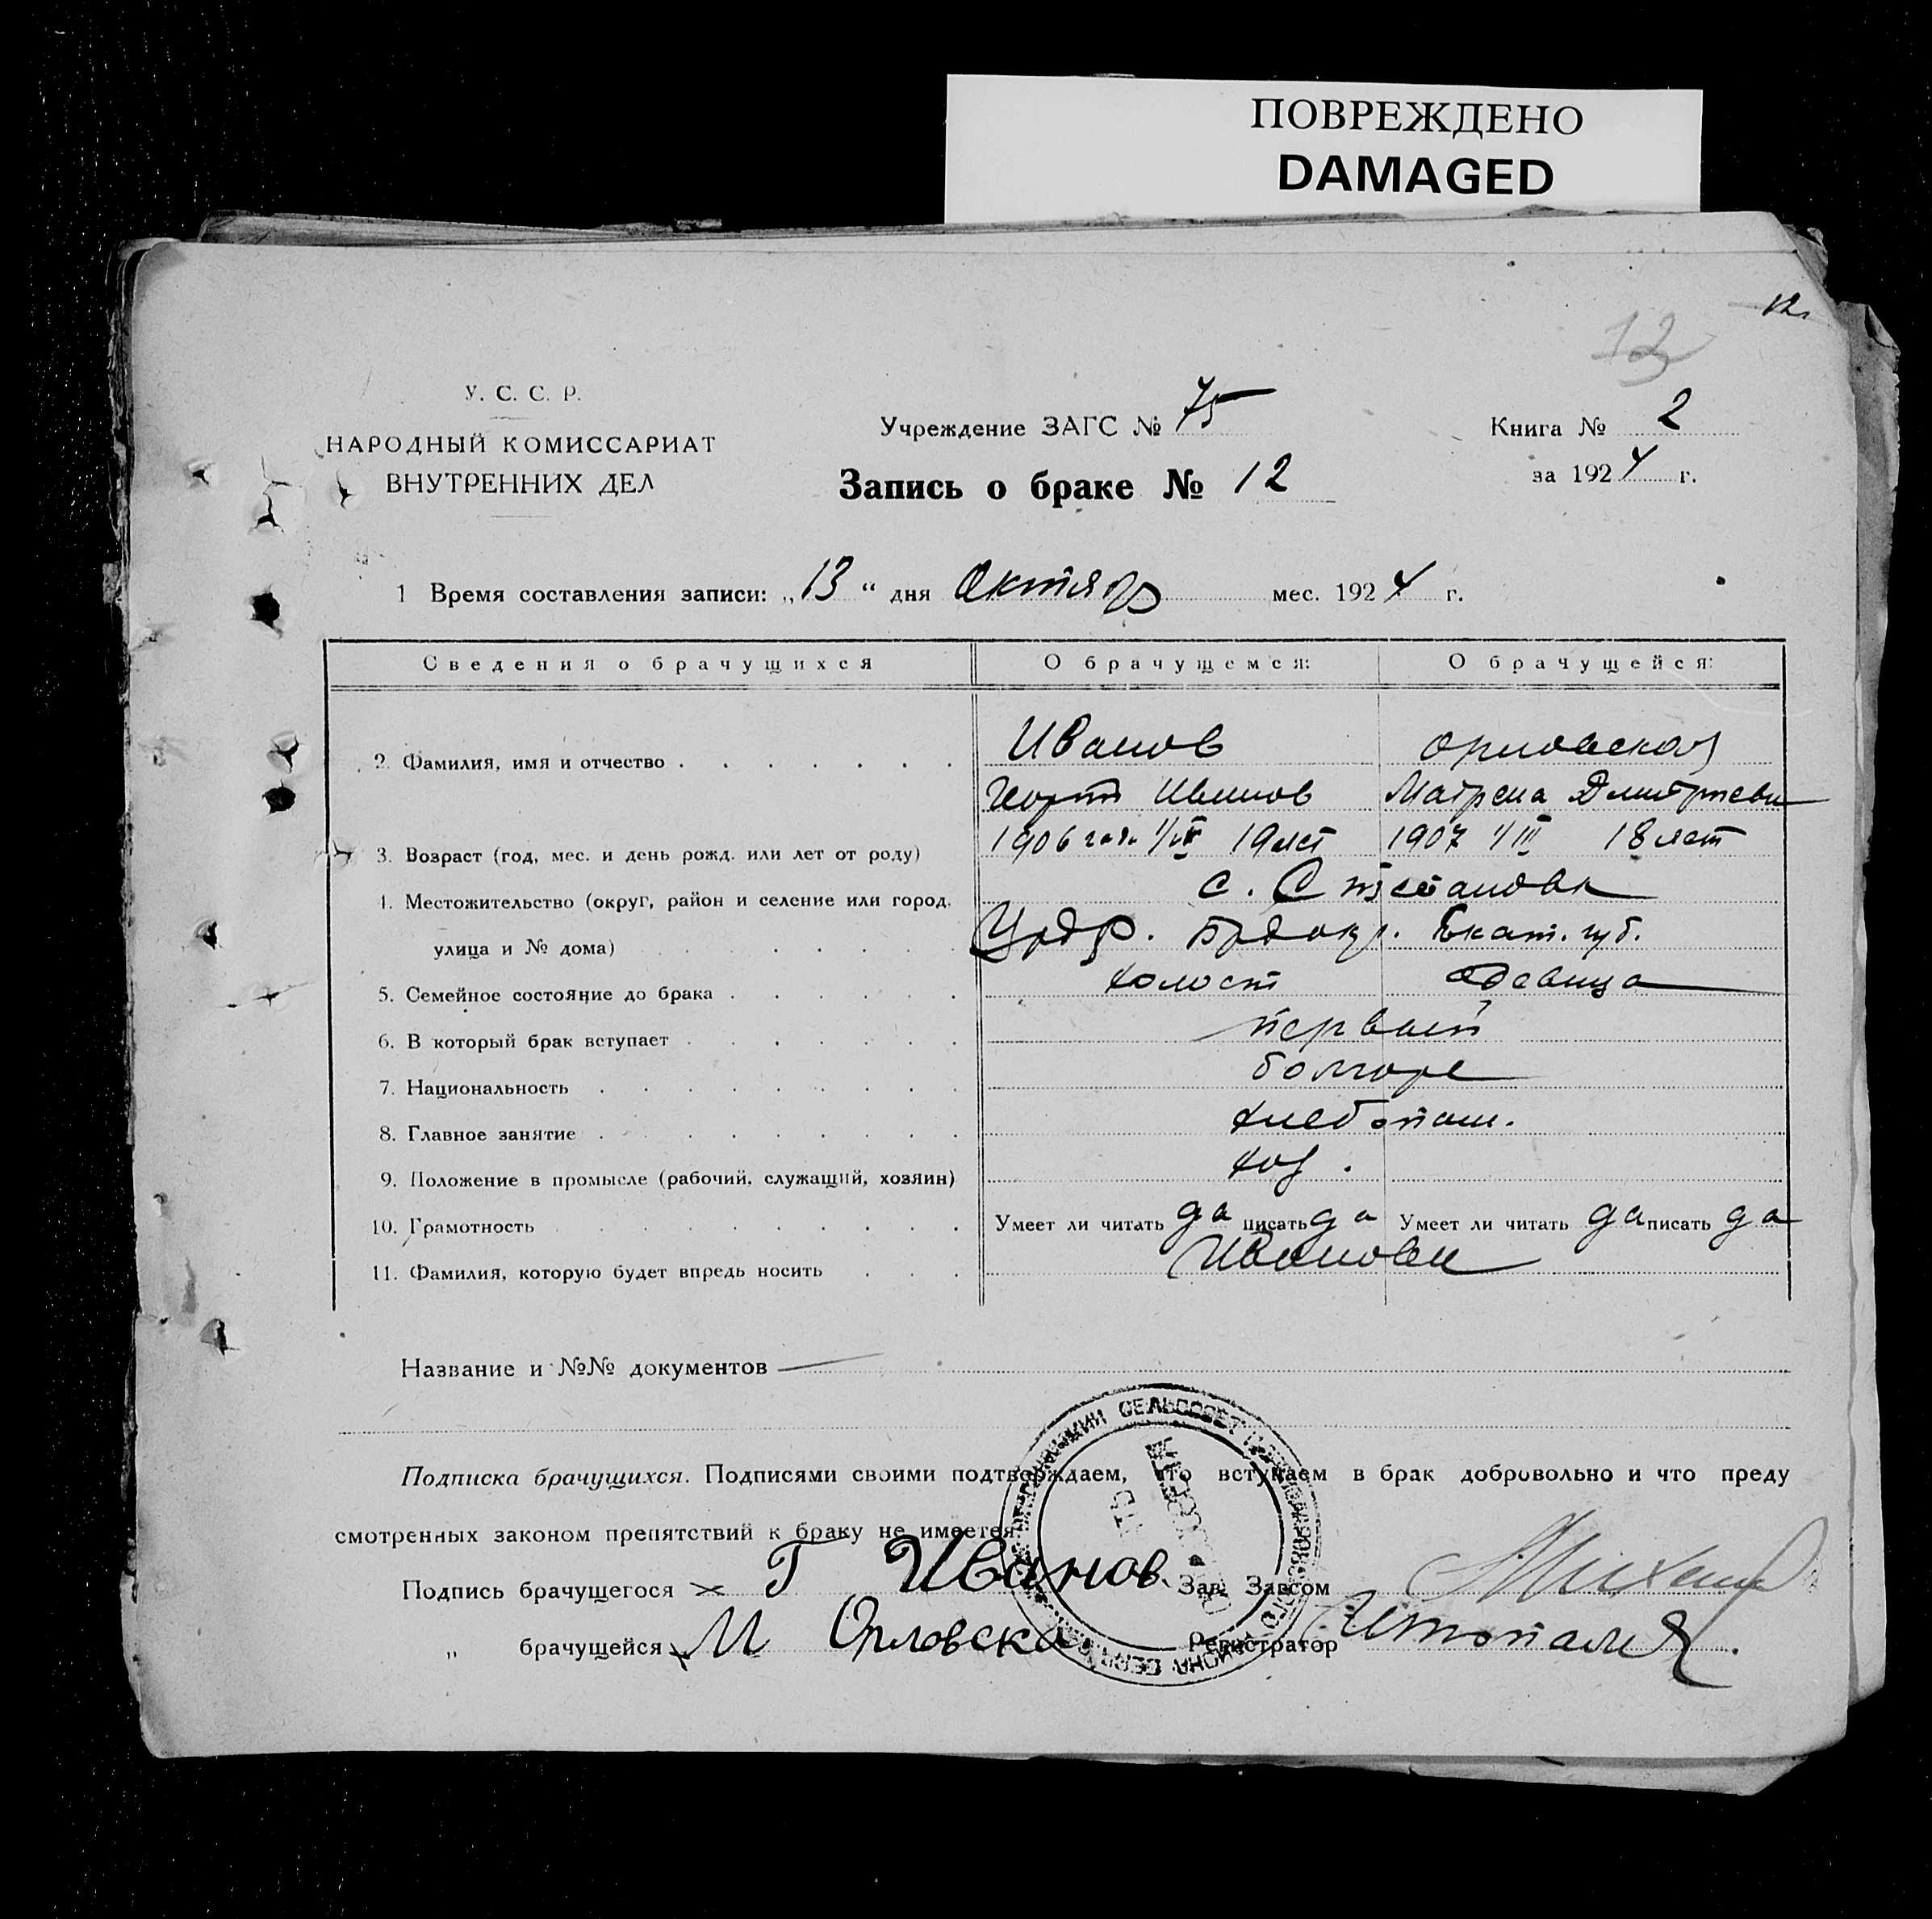 ПОВРЕЖДЕНО
DAMAGED
12
12
У. С. С. Р.
НАРОДНЫЙ КОМИССАРИАТ
ВНУТРЕННИХ ДЕЛ
Учреждение ЗАГС № 75
Запись о браке № 12
Книга № 2
за 1924 г.
1 Время составления записи: „13“ дня Октябр мес. 1924 г.
Сведения о брачущихся О брачущемся: О брачущейся:
2. Фамилия, имя и отчество Иванов Орловская
Иванов Матрена Дмитриевн
3. Возраст (год, мес. и день рожд. или лет от роду) 1906 года 19 лет 1907 1/III 18 лет
4. Местожительство (округ, район и селение или город, с. Степановк
улица и № дома) Екат. губ.
5. Семейное состояние до брака холост девица
6. В который брак вступает первый
7. Национальность болгаре
8. Главное занятие хлебопаш.
9. Положение в промысле (рабочий, служащий, хозяин) хоз.
10. Грамотность Умеет ли читать да писать да Умеет ли читать да писать да
11. Фамилия, которую будет впредь носить Ивановы
Название и №№ документов —
Подписка брачущихся. Подписями своими подтверждаем, что вступаем в брак добровольно и что преду
смотренных законом препятствий к браку не имеется
Подпись брачущегося Г Иванов Зав. Загсом
„ брачущейся М Орловска Регистратор
СЕЛЬСОВЕТ